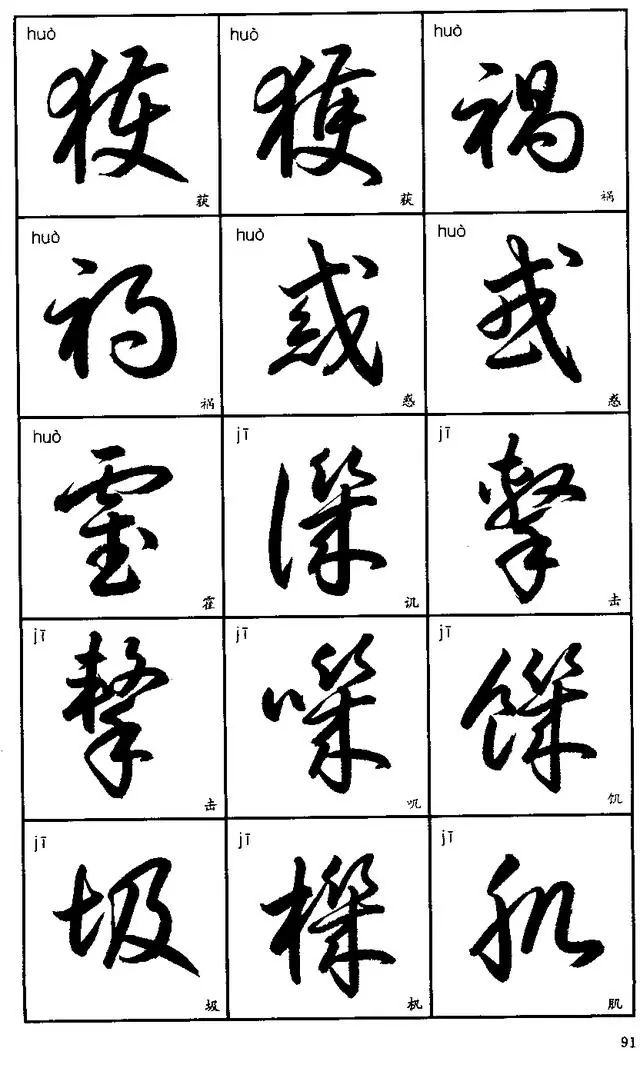 huò huò huò
獲 獲 禍
获 获 祸
huò huò huò
禍 惑 惑
祸 惑 惑
huò jī jī
霍 譏 擊
霍 讥 击
jī jī jī
擊 嘰 饑
击 叽 饥
jī jī jī
圾 機 肌
圾 机 肌
91